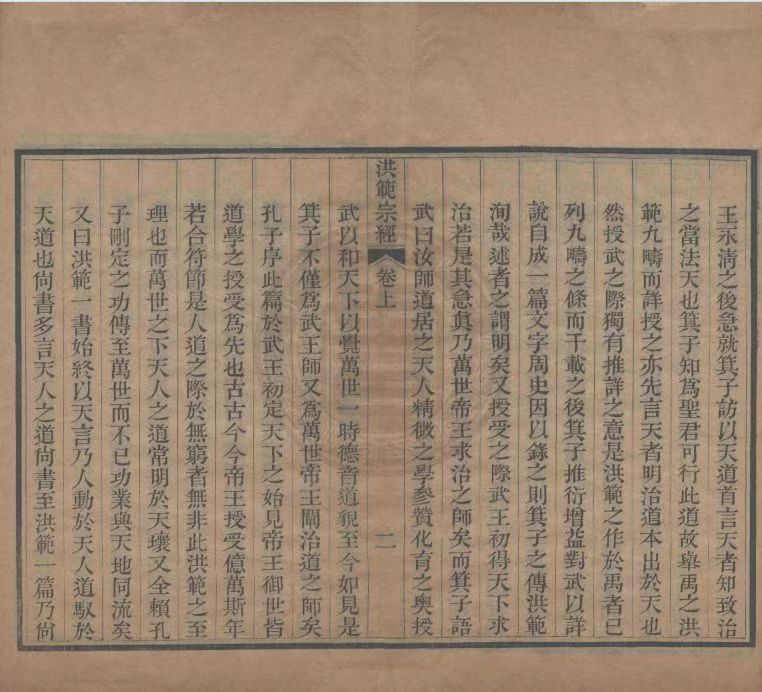 王永清之後急就箕子訪以天道首言天者知致治
之當法天也箕子知爲聖君可行此道故舉禹之洪
範九疇而詳授之亦先言天者明治道本出於天也
然授武之際獨有推詳之意是洪範之作於禹者已
列九疇之條而千載之後箕子推衍增益對武以詳
說自成一篇文字周史因以錄之則箕子之傳洪範
洵哉述者之謂明矣又授受之際武王初得天下求
治若是其急眞乃萬世帝王求治之師矣而箕子語
武曰汝師道居之天人精微之學參贊化育之奧授
洪範宗經
卷上
二
武以和天下以覺萬世一時德音道貌至今如見是
箕子不僅爲武王師又爲萬世帝王闡治道之師矣
孔子序此篇於武王初定天下之始見帝王御世皆
道學之授受爲先也古古今今帝王授受億萬斯年
若合符節是人道之際於無窮者無非此洪範之至
理也而萬世之下天人之道常明於天壤又全賴孔
子刪定之功傳至萬世而不已功業與天地同流矣
又曰洪範一書始終以天言乃人動於天人道馭於
天道也尙書多言天人之道尙書至洪範一篇乃尙